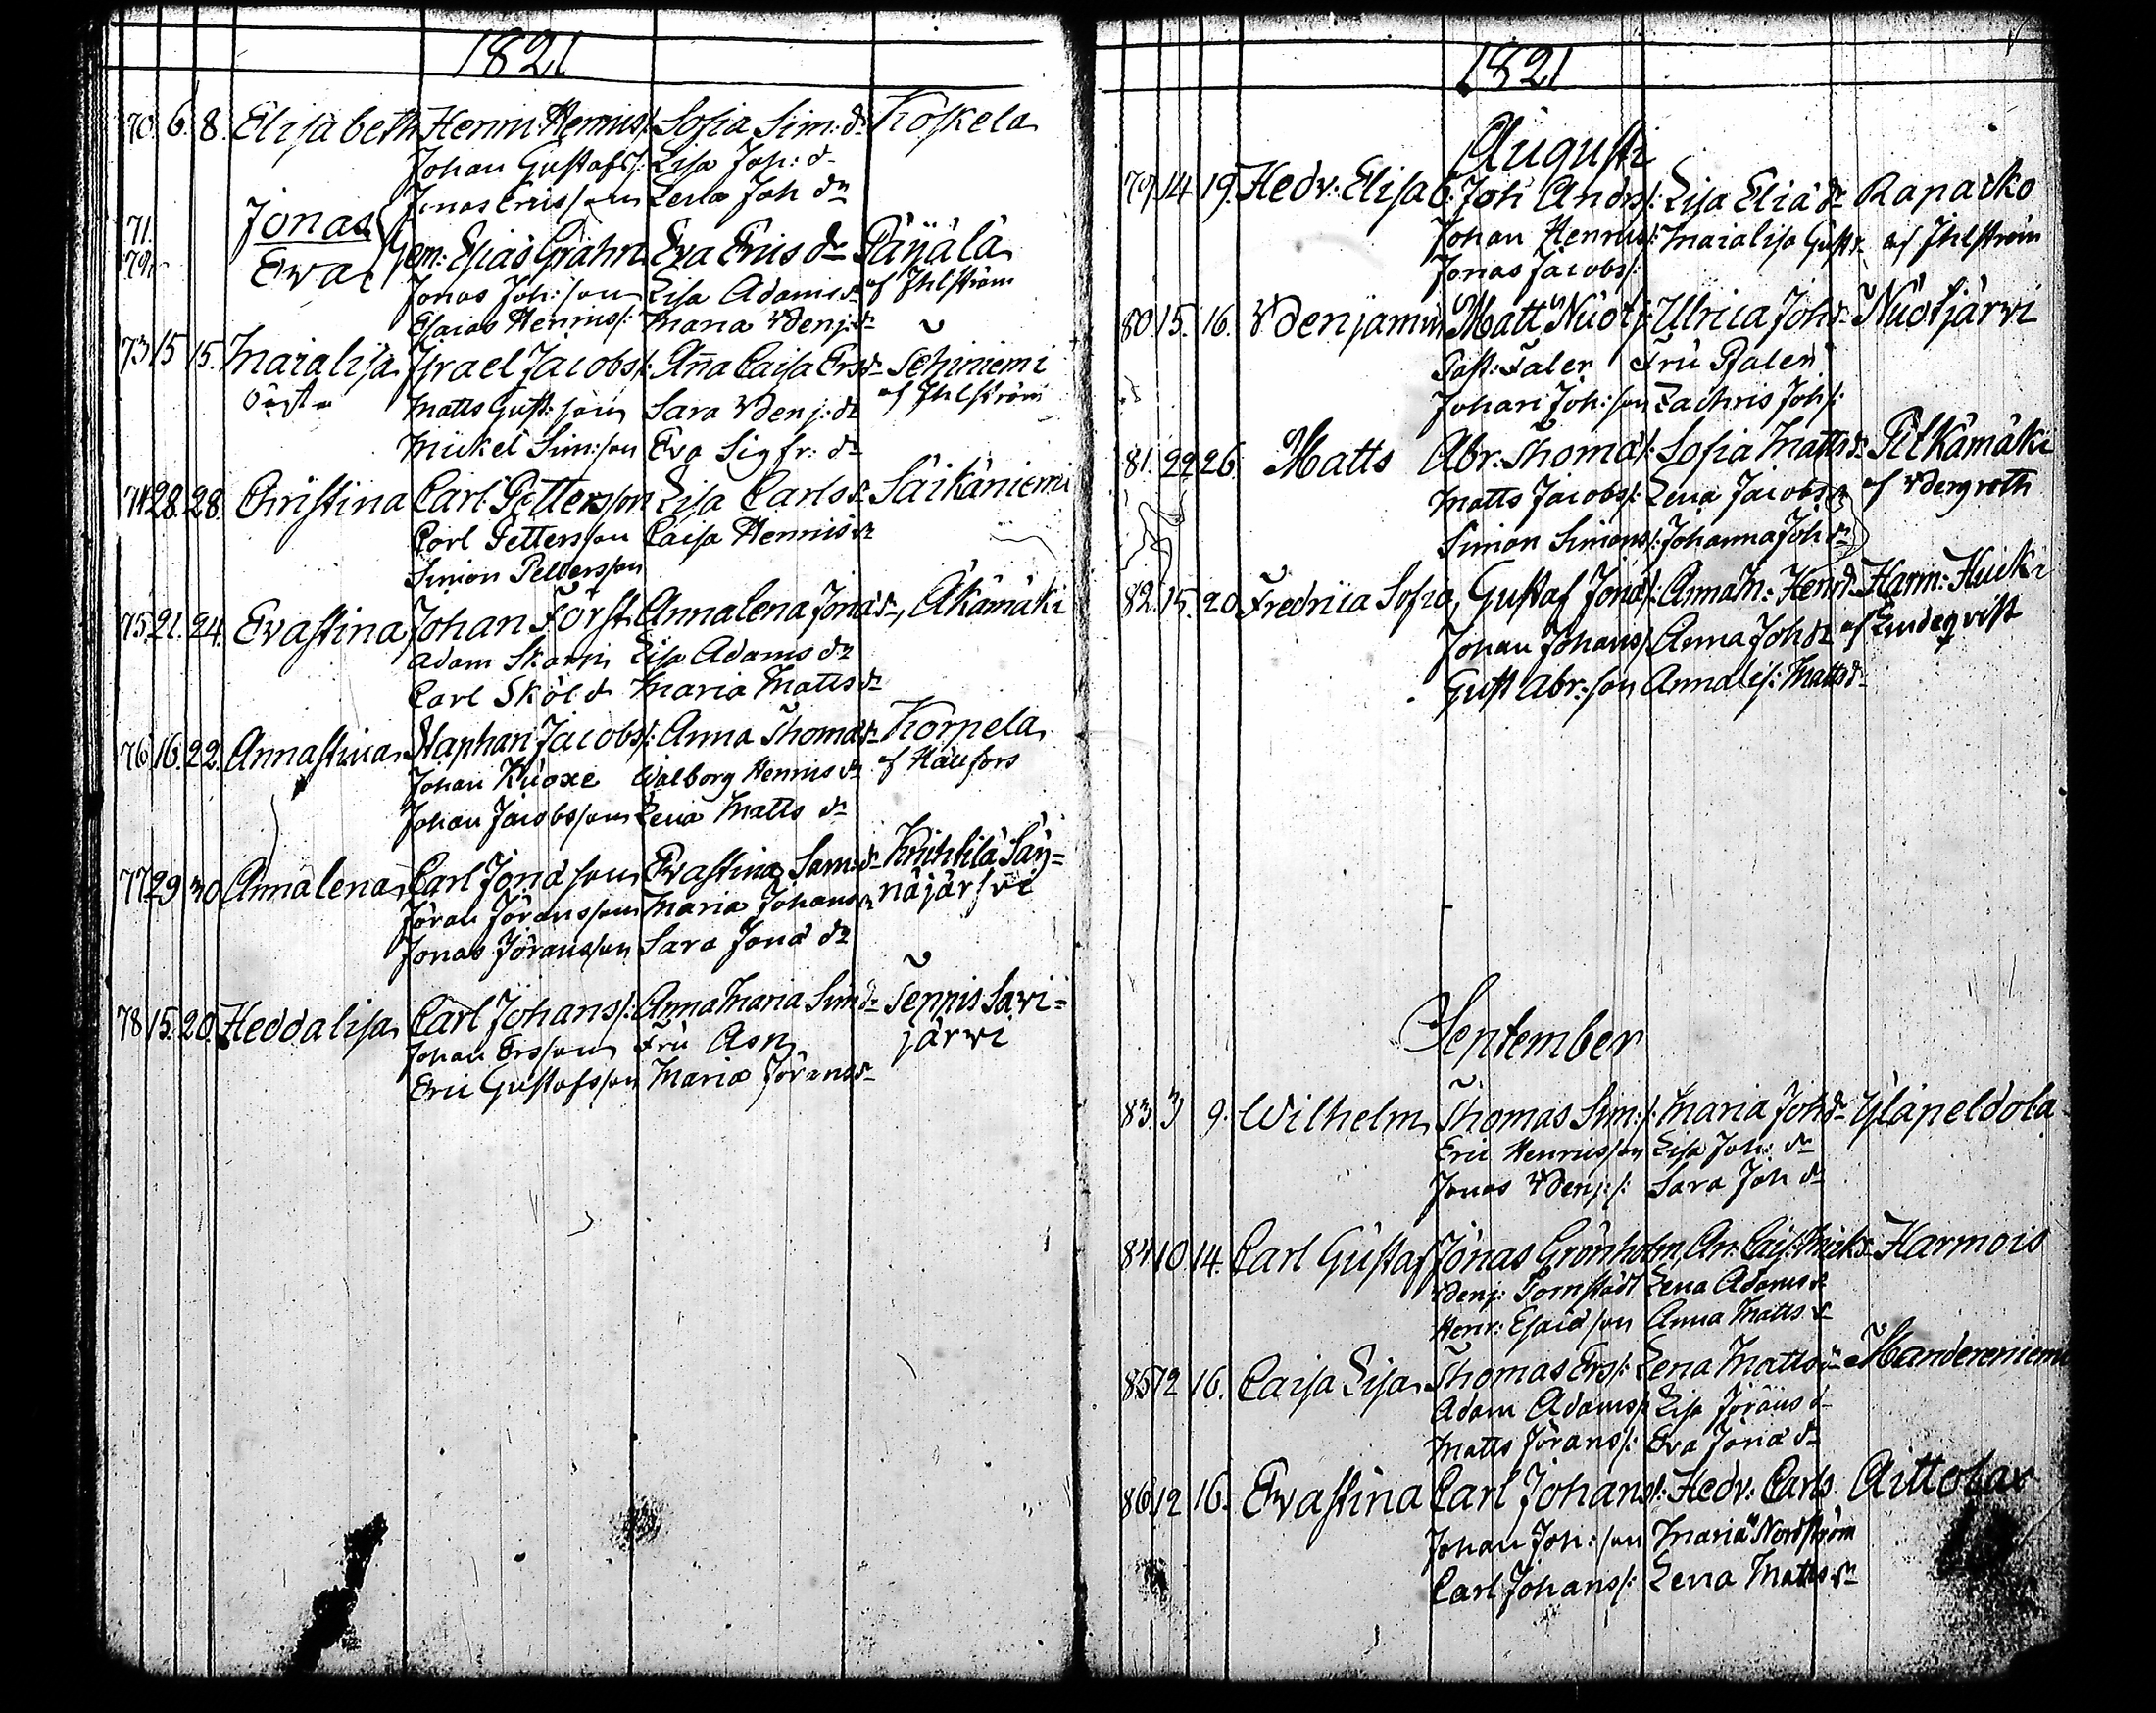 1821
70. 6. 8. Elisabeth Henr: Henrics/: Sofia Sim: dr Koskela
Johan Gustafs/: Lisa Joh: dr
Jonas Ericsson Lena Joh dr
71. Jonas
72. Eva Gem: Elias Grahn Eva Erics dr Päijälä
Jonas Joh:son Lisa Adams dr af Ihlström
Esaias Henrics/: Maria Benj: dr
73 15 15. Maialisa Israel Jacobs/: Anna Caisa Ers dr Tehiniemi
oägta Matts Gust:son Sara Benj: dr af Ihlström
Mickel Sim:son Eva Sigfr: dr
74 28. 28. Christina Carl Petterson Lisa Carls dr Säikäniemi
Carl Petterson Caisa Henrics dr
Simon Petterson
75 21. 24. Evastina Johan Först Annalena Jona dr, Äkämäki
Adam Skarp Lisa Adams dr
Carl Sköld Maria Matts dr
76 16. 22. Annastina Staphan Jacobs/: Anna Thoma dr Korpela
Johan Kuoxe Walborg Henrics dr af Häufors
Johan Jacobsson Lena Matts dr
77 29 30 Annalena Carl Jona son Evastina Sam: dr Kuhlila Säy=
Jöran Jöransson Maria Johans dr näjärfvi
Jonas Jöransson Sara Jona dr
78 15. 20. Heddalisa Carl Johans/: Anna Maria Sim dr Tennis Sari=
Johan Ersson Fru Asp järvi
Eric Gustafsson Maria Jörans dr
1821
Augusti
79 14 19. Hedv: Elisab: Joh Anders/: Lisa Elia dr Rapacko
Johan Henrics/: Maialisa Gust dr af Ihlström
Jonas Jacobs/:
80. 15. 16. Benjamin Matt Nuotj: Ulrica Joh dr Nuotjärvi
Past: Faler Fru Pfaler
Johan Joh:son Zachris Joh/:
81. 22 26. Matts Abr: Thoma/: Sofia Matts dr Pitkämäki
Matts Jacobs/: Lena Jacobs dr af Bergroth
Simon Simons/: Johanna Joh dr
82. 15. 20 Fredrica Sofia, Gustaf Jona/: Anna M: Henr dr Harm: Hucki
Johan Johans/: Anna Joh dr af Lindeqvist
Gust Abr:son Annalis: Matts dr
September
83. 3 9. Wilhelm Thomas Sim:/: Maria Joh dr Yläpeldola
Eric Henricsson Lisa Joh: dr
Jonas Benj:/: Sara Joh dr
84 10. 14. Carl Gustaf Jonas Grönholm, An: Cais: Mick dr Harmois
Benj: Tornstädt Lena Adams dr
Henr: Esaia son Anna Matts dr
85 12 16. Caisa Lisa Thomas Ers/: Lena Matts dr Mandereniemi
Adam Adams/: Lisa Jörans dr
Matts Jörans/: Eva Jona dr
86 12 16. Evastina Carl Johans/: Hedv: Carls. Aittolax
Johan Joh:son Maria Nordström
Carl Johans/: Lena Matts dr